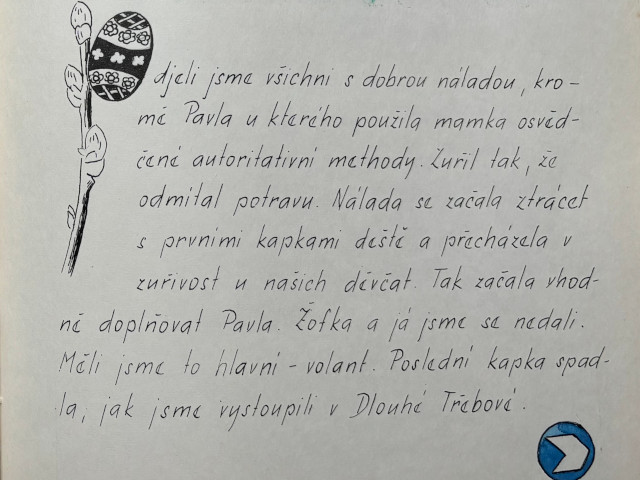 Odjeli jsme všichni s dobrou náladou, kro-
mě Pavla u kterého použila mamka osvěd-
čené autoritativní methody. Zuřil tak, že
odmítal potravu. Nálada se začala ztrácet
s prvními kapkami deště a přecházela v
zuřivost u našich děvčat. Tak začala vhod-
ně doplňovat Pavla. Žofka a já jsme se nedali.
Měli jsme to hlavní - volant. Poslední kapka spad-
la, jak jsme vystoupili v Dlouhé Třebové.